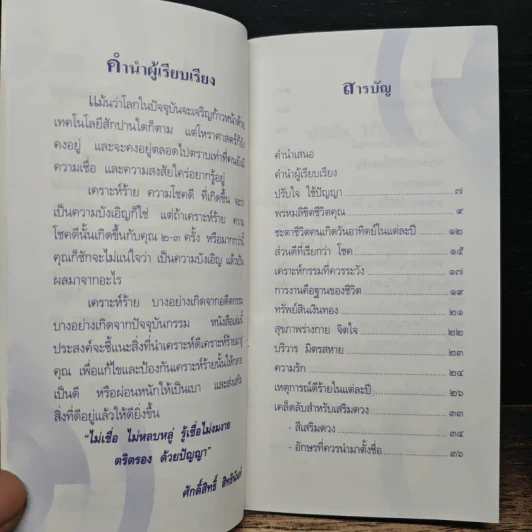 คำนำผู้เรียบเรียง
แม้นว่าโลกในปัจจุบันจะเจริญก้าวหน้าด้วย
เทคโนโลยีสักปานใดก็ตาม แต่โหราศาสตร์ก็ยัง
คงอยู่ และจะคงอยู่ตลอดไปตราบเท่าที่คนยังมี
ความเชื่อ และความสงสัยใคร่อยากรู้อยู่
เคราะห์ร้าย ความโชคดี ที่เกิดขึ้น จะว่า
เป็นความบังเอิญก็ใช่ แต่ถ้าเคราะห์ร้าย ความ
โชคดีนั้นเกิดขึ้นกับคุณ ๒-๓ ครั้ง หรือมากกว่านี้
คุณก็ชักจะไม่แน่ใจว่า เป็นความบังเอิญ แล้วเป็น
ผลมาจากอะไร
เคราะห์ร้าย บางอย่างเกิดจากอดีตกรรม
บางอย่างเกิดจากปัจจุบันกรรม หนังสือเล่มนี้
ประสงค์จะชี้แนะสิ่งที่นำเคราะห์ดีเคราะห์ร้ายมาสู่
คุณ เพื่อแก้ไขและป้องกันเคราะห์ร้ายนั้นให้กลาย
เป็นดี หรือผ่อนหนักให้เป็นเบา และส่งเสริม
สิ่งที่ดีอยู่แล้วให้ดียิ่งขึ้น
"ไม่เชื่อ ไม่หลบหลู่ รู้เชื่อไม่งมงาย
ตริตรอง ด้วยปัญญา"
ศักดิ์สิทธิ์
สารบัญ
คำนำเสนอ
คำนำผู้เรียบเรียง
ปรับใจ ใช้ปัญญา ๗
พรหมลิขิตชีวิตคุณ ๙
ชะตาชีวิตคนเกิดวันอาทิตย์ในแต่ละปี ๑๒
ส่วนดีที่เรียกว่า โชค ๑๕
เคราะห์กรรมที่ควรระวัง ๑๗
การงานคือฐานของชีวิต ๑๙
ทรัพย์สินเงินทอง ๒๑
สุขภาพร่างกาย จิตใจ ๒๒
บริวาร มิตรสหาย ๒๓
ความรัก ๒๔
เหตุการณ์ดีร้ายในแต่ละปี ๒๖
เคล็ดลับสำหรับเสริมดวง ๓๓
- สีเสริมดวง ๓๔
- อักษรที่ควรนำมาตั้งชื่อ ๓๖